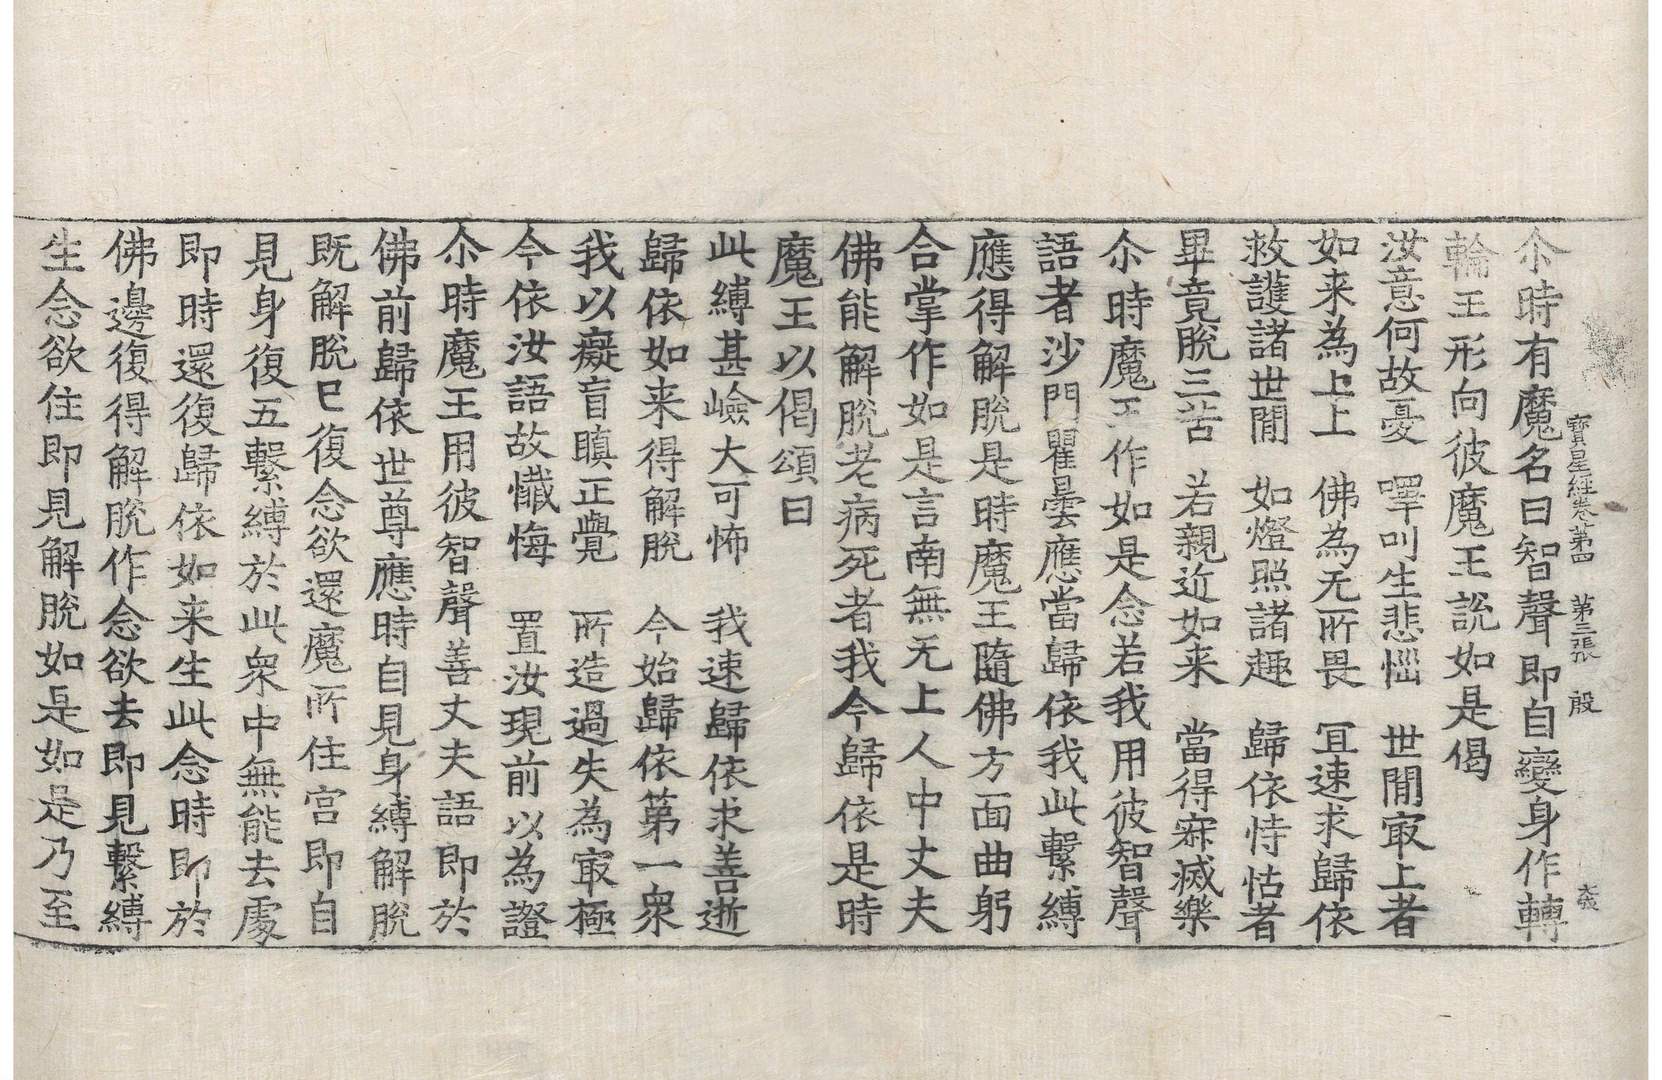 寶星經卷第四　第三張　殷
尒時有魔名曰智聲即自變身作轉
輪王形向彼魔王說如是偈
汝意何故憂　嘷叫生悲惱　世閒㝡上者
如来為上上　佛為无所畏　冝速求歸依
救護諸世閒　如燈照諸趣　歸依恃怙者
畢竟脫三苦　若親近如来　當得寂滅樂
尒時魔王作如是念若我用彼智聲
語者沙門瞿曇應當歸依我此繫縛
應得解脫是時魔王隨佛方面曲躬
合掌作如是言南無无上人中丈夫
佛能解脫老病死者我今歸依是時
魔王以偈頌曰
此縛甚嶮大可怖　我速歸依求善逝
歸依如来得解脫　今始歸依第一衆
我以癡盲瞋正覺　所造過失為㝡極
今依汝語故懺悔　置汝現前以為證
尒時魔王用彼智聲善丈夫語即於
佛前歸依世尊應時自見身縛解脫
既解脫已復念欲還魔所住宫即自
見身復五繫縛於此衆中無能去處
即時還復歸依如来生此念時即於
佛邊復得解脫作念欲去即見繫縛
生念欲住即見解脫如是如是乃至